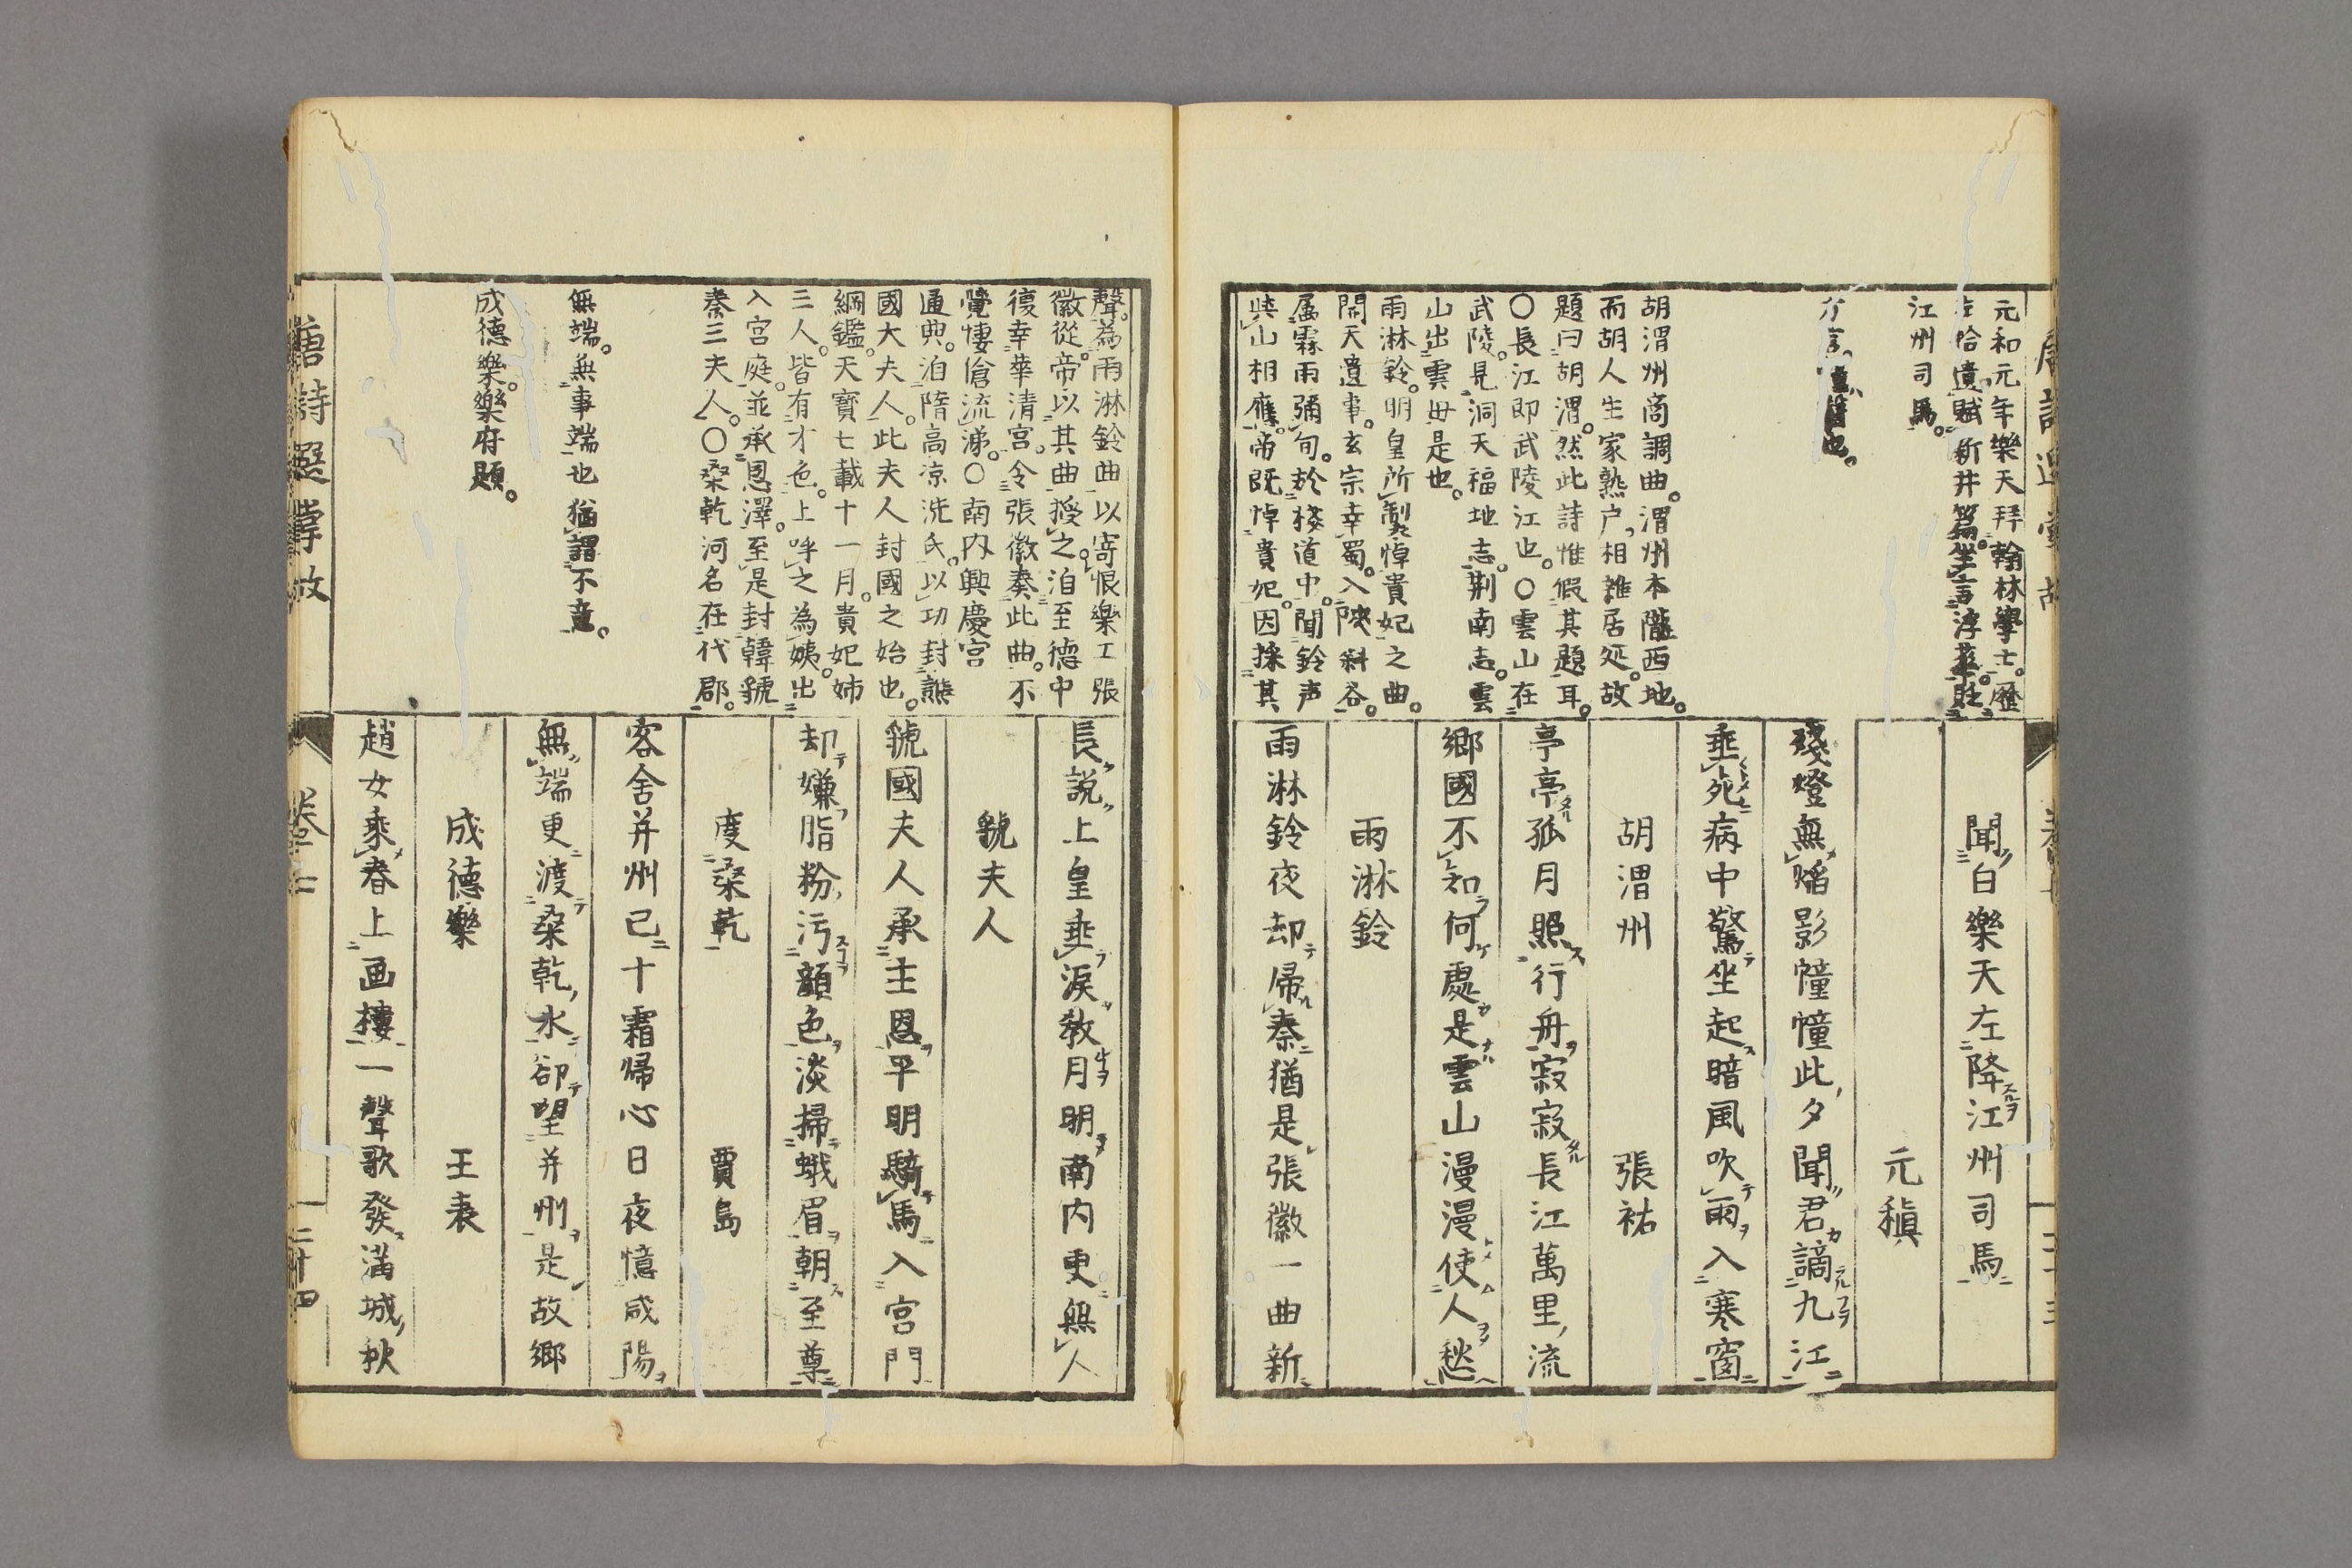 元和元年樂天拜翰林學士。歷
左拾遺賦新井篇。坐言浮華。貶
江州司馬。
胡渭州商調曲。渭州本隴西地。
而胡人生家熟户、相雜居処。故
題曰胡渭。然此詩惟假其題耳。
〇長江即武陵江也。〇雲山在
武陵。見洞天福地志。荆南志。雲
山出雲毋是也。
雨淋鈴。明皇所製悼貴妃之曲。
開天遺事。玄宗幸蜀。入陝斜谷。
属霖雨彌旬。於棧道中。聞鈴声
與山相應。帝既悼貴妃。因採其
聞白樂天左降江州司馬
元稹
殘燈無焰影幢幢此夕聞君謫九江
垂死病中驚坐起暗風吹雨入寒窗
胡渭州 張祐
亭亭孤月照行舟寂寂長江萬里流
鄉國不知何處是雲山漫漫使人愁
雨淋鈴
雨淋鈴夜却歸秦猶是張徽一曲新
聲。為雨淋鈴曲以寄恨樂工張
徽從。帝以其曲授之。洎至德中
復幸華清宮。令張徽奏此曲。不
覺悽愴流涕。〇南内興慶宮
通典。洎隋高凉洗氏。以功封譙
國大夫人。此夫人封國之始也。
綱鑑。天寶七載十一月。貴妃姉
三人。皆有才色。上呼之為姨。出
入宮庭。並承恩澤。至是封韓虢
秦三夫人。〇桑乾河名在代郡。
無端。無事端也猶謂不意。
成德樂。樂府題。
長說上皇垂淚教月明南内更無人
虢夫人
虢國夫人承主恩平明騎馬入宮門
却嫌脂粉污顔色淡掃蛾眉朝至尊
度桑乾 賈島
客舍并州已十霜歸心日夜憶咸陽
無端更渡桑乾水卻望并州是故鄉
成德樂 王表
趙女乘春上画樓一聲歌發滿城秋
唐詩選掌故 卷七 二十四